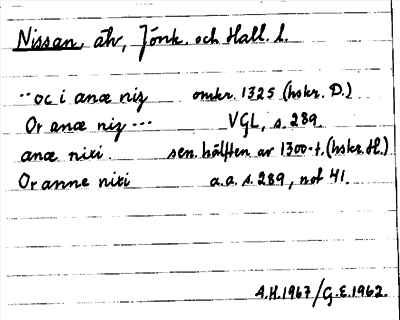 Nissan, älv, Jönk. och Hall. l.
·· oc i anæ niz omkr. 1325 (hskr. D.)
Or anæ niz ··· VGL, s. 289.
anæ nixi. sen. hälften av 1300-t. (hskr. H.)
Or anne nixi a.a. s. 289, not 41.
A.H. 1967/G.E. 1962.